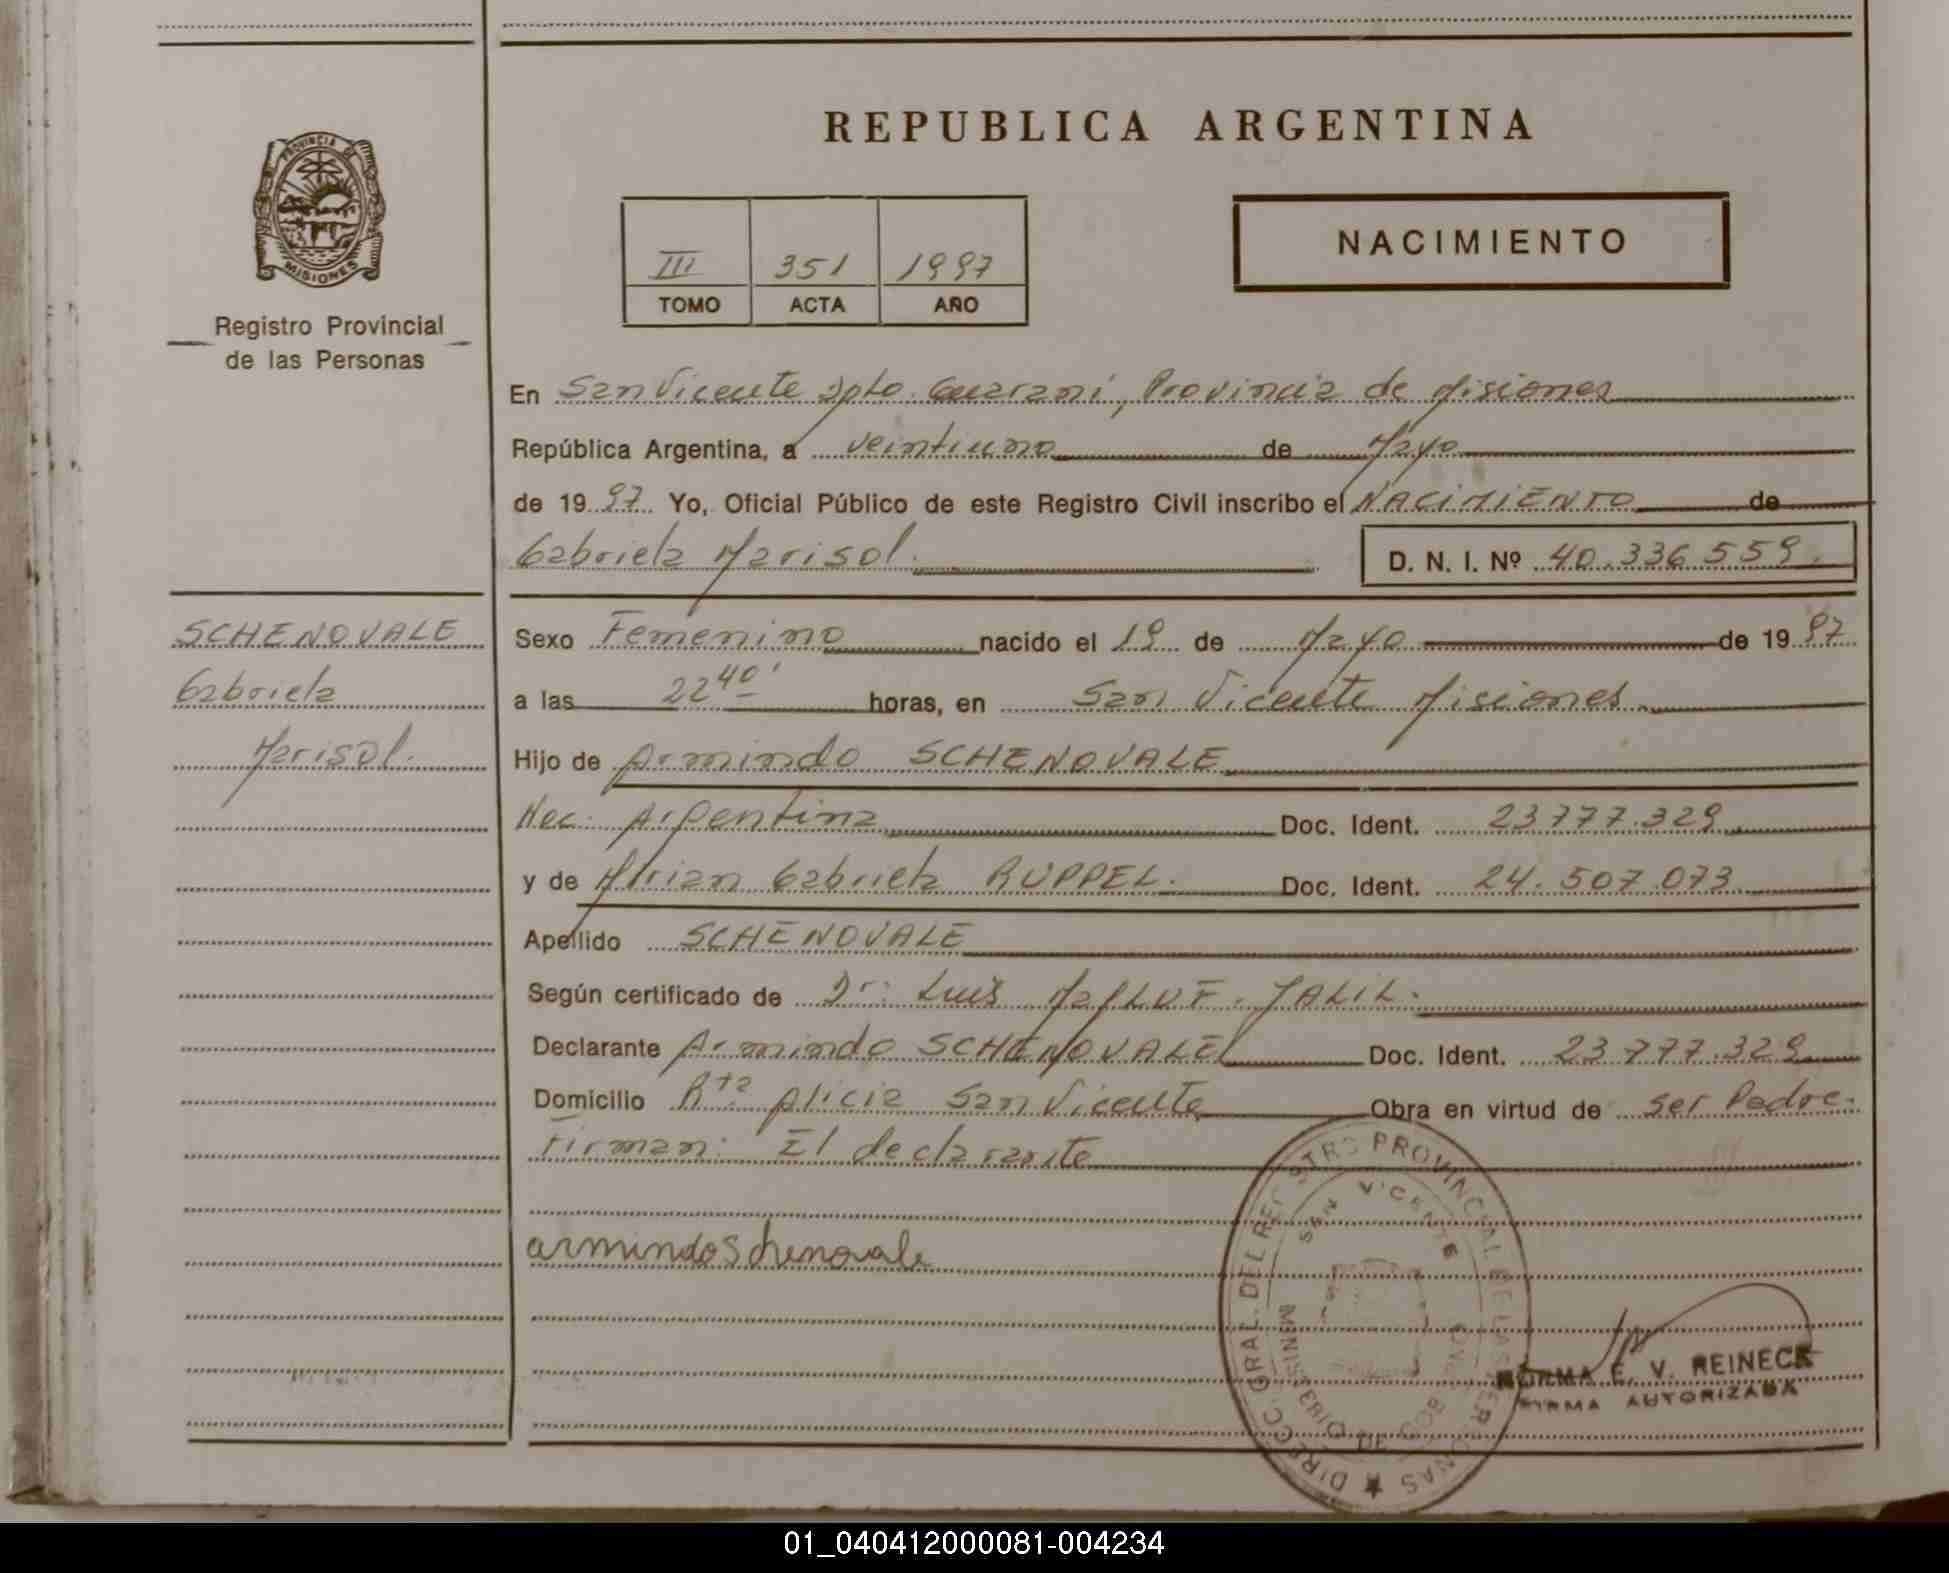 REPUBLICA ARGENTINA
PROVINCIA DE
MISIONES
Registro Provincial
de las Personas
III 351 1997
TOMO ACTA AÑO
NACIMIENTO
En San Vicente Dpto. Guaraní, Provincia de Misiones
República Argentina, a veintiuno de Mayo
de 1997 Yo, Oficial Público de este Registro Civil inscribo el NACIMIENTO de
Gabriela Marisol. D. N. I. Nº 40.336.559.
SCHENOVALE
Gabriela
Marisol.
Sexo Femenino nacido el 19 de Mayo de 1997
a las 22 40' horas, en San Vicente Misiones.
Hijo de Armindo SCHENOVALE
Nac. Argentina Doc. Ident. 23.777.329
y de Mirian Gabriela RUPPEL. Doc. Ident. 24.507.073
Apellido SCHENOVALE
Según certificado de Dr. Luis JALIL.
Declarante Armindo SCHENOVALE Doc. Ident. 23.777.329
Domicilio Rta Alicia San Vicente Obra en virtud de ser Padre.
Firman: El declarante
armindo Schenovale
DIRECC. GRAL. DEL REGISTRO PROVINCIAL DE LAS PERSONAS
SAN VICENTE
DE GOB
NORMA E. V. REINECK
FIRMA AUTORIZADA
01_040412000081-004234